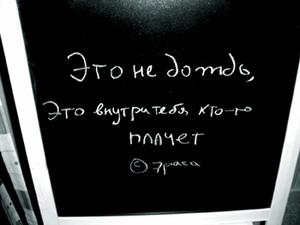 Это не дождь,
Это внутри тебя кто-то
плачет
© 7раса